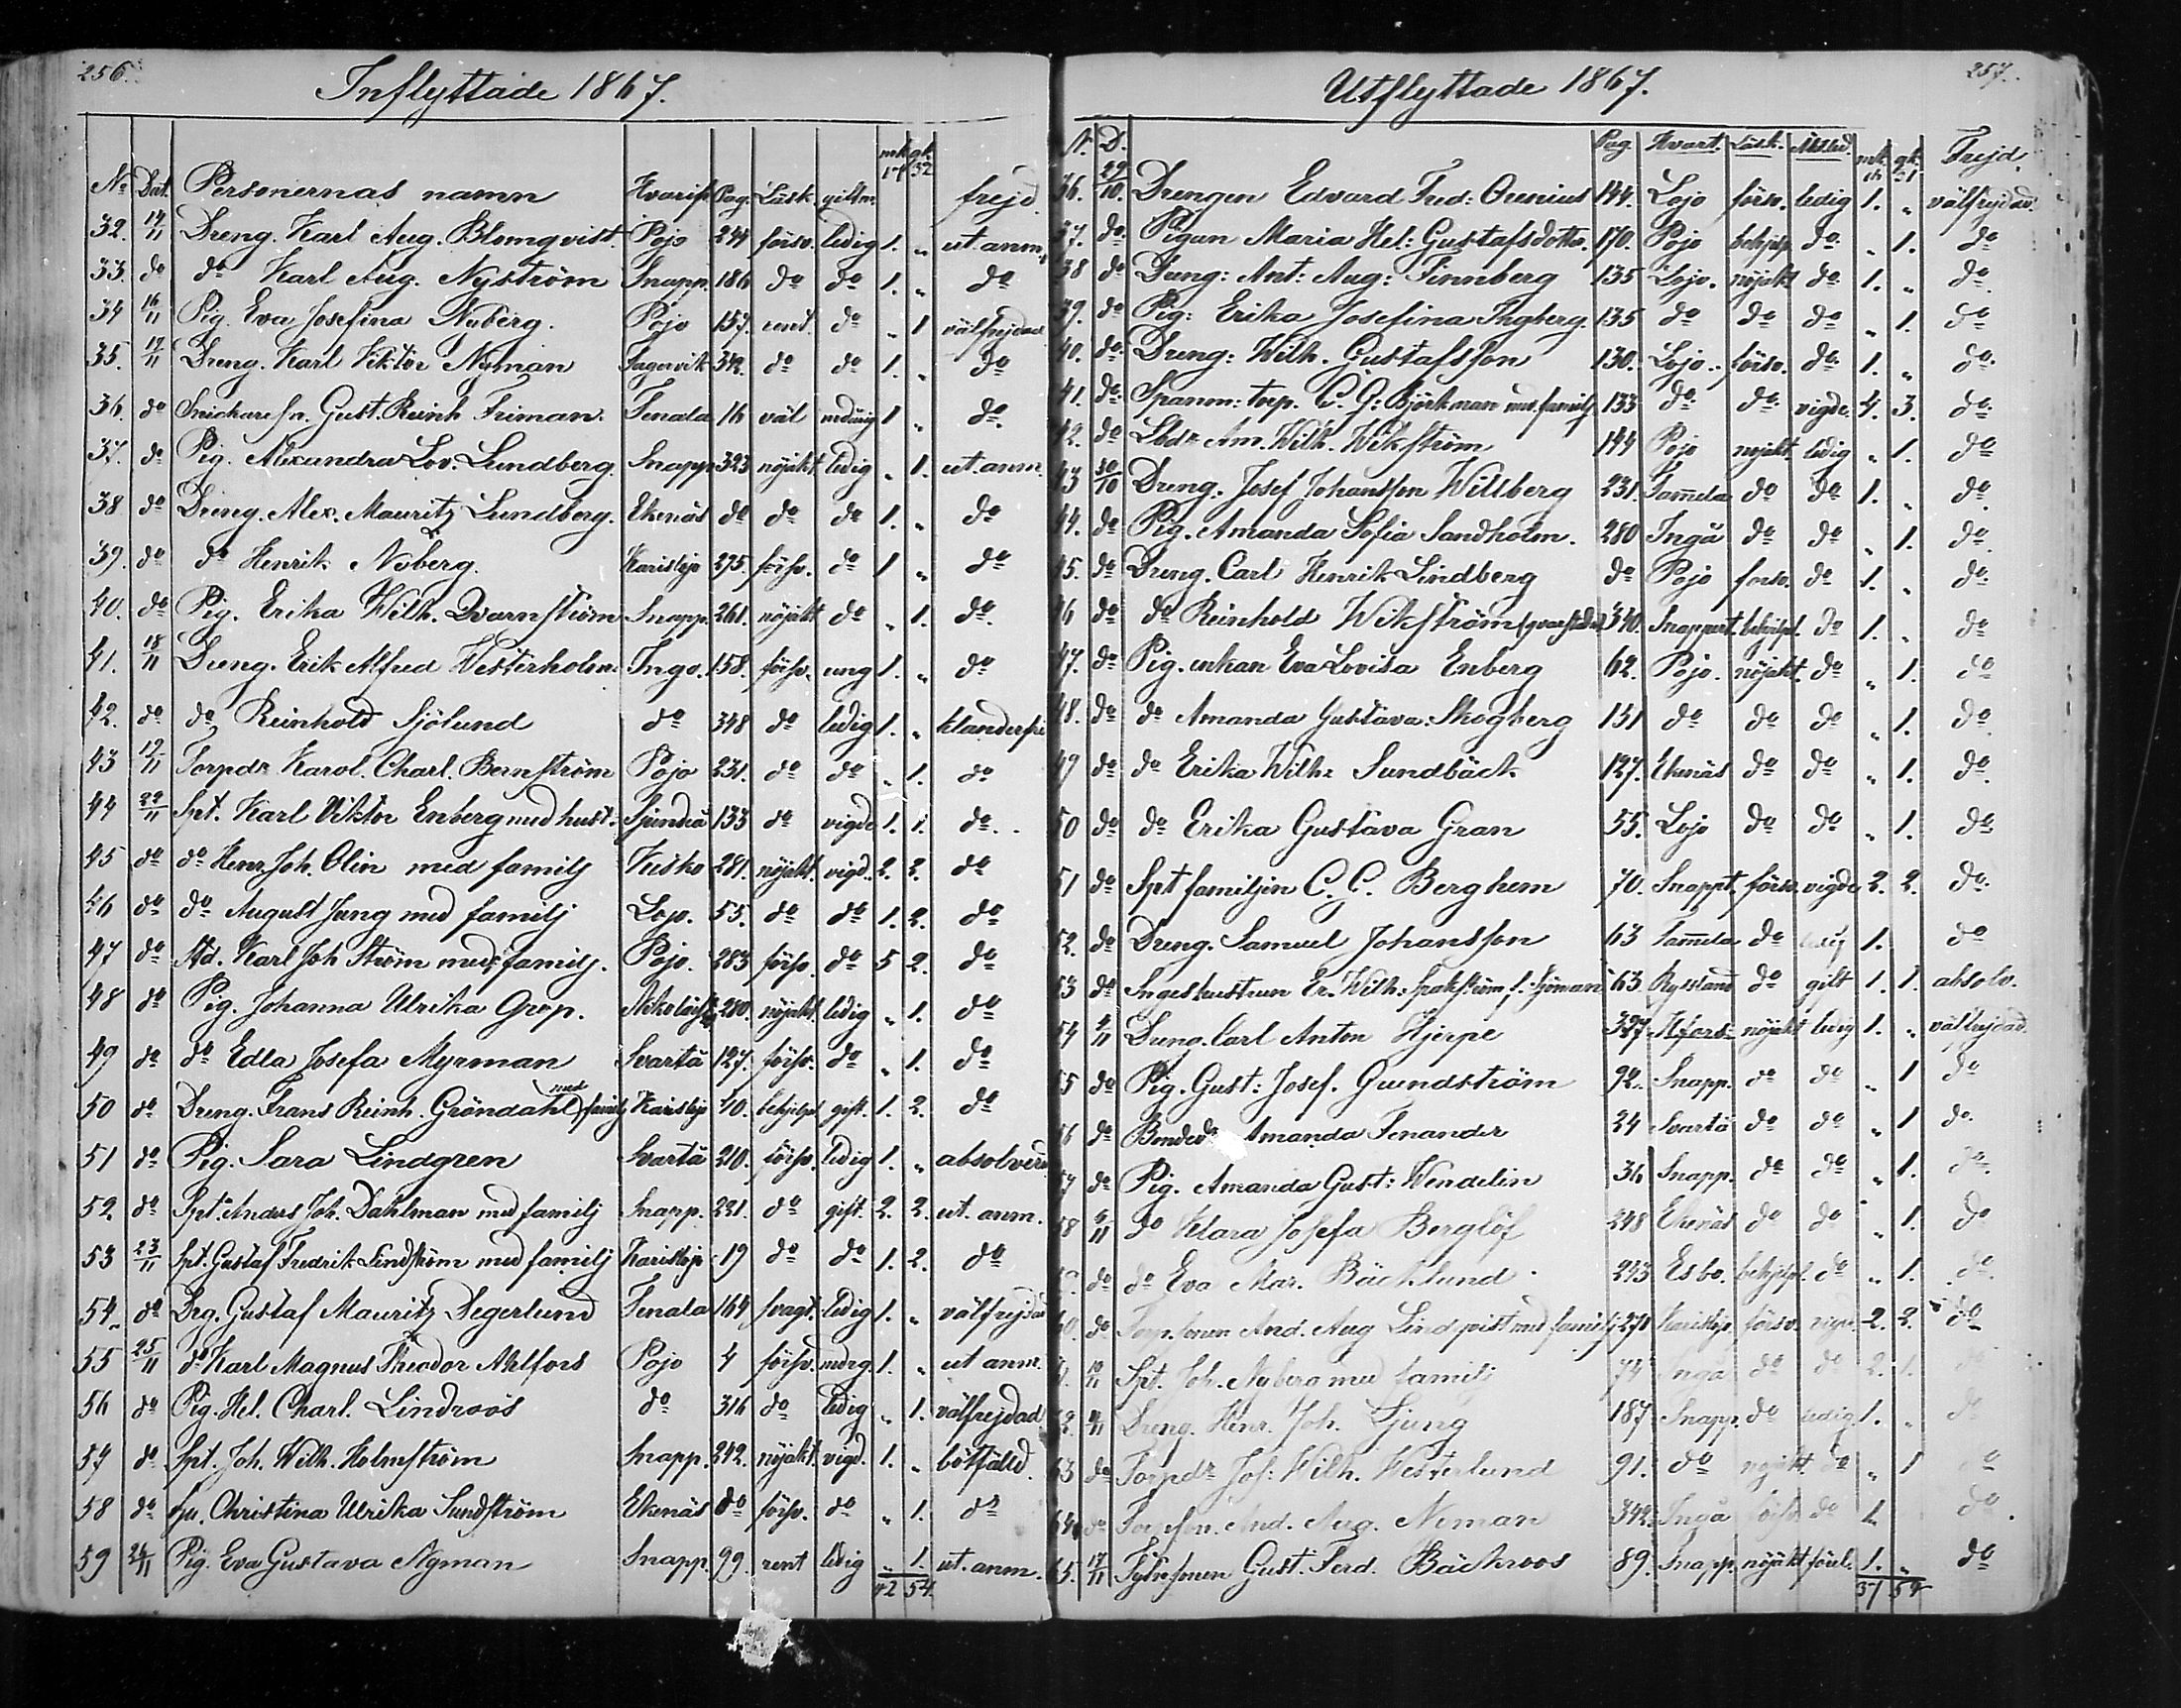 256.
Inflyttade 1867.
mk. qk.
17 32
No Dat. Personernas namn Hvarifr. Pag. Läsk. giftm. frejd.
32. 14/11 Dreng. Karl Aug. Blomqvist. Pojo 244 försv. ledig 1. „ ut. anm.
33. do do Karl Aug. Nyström Snapp. 186 do do 1. „ do
34 16/11 Pig. Eva Josefina Nyberg. Pojo 157. do „ 1 välfrejdad
35. 17/11 Dreng. Karl Viktor Nyman Fagervik 342. do do 1. „ do
36. do Snickaresn. Gust. Reinh Friman. Tenala 16 väl 1 „ do.
37. do Pig. Alexandra Lov. Lundberg. Snapp 323 nöjakt. ledig „ 1. ut. anm.
38 do Dreng. Alex. Mauritz Lundberg. Ekenäs do do do 1. „ do
39. do do Henrik Nyberg. Karislojo 275. försv. do 1 „ do
40. do Pig. Erika Wilh. Qvarnström Snapp. 261. nöjakt do „ 1. do.
41. 18/11 Dreng. Erik Alfred Westerholm. Ingo. 158. försv. ung 1. „ do
42. do do Reinhold Sjölund do 348 do ledig 1. „ klanderfri
43 19/11 Torpdr Karol. Charl. Bernström Pojo 231. do do „ 1. do
44 22/11 Spt. Karl Viktor Enberg med hust. Sjundeå 133 do vigde 1. 1. do.
45 do do Henr. Joh. Olin med familj Kisko 281. nöjakt. vigd. 2. 2. do
46 do do August Jung med familj Lojo. 55. do do 1. 2. do
47 do Std. Karl Joh Ström med familj. Pojo. 283 försv. do 5 2. do
48 do Pig. Johanna Ulrika Grop. 280. nöjakt. ledig „ 1. do
49 do do Edla Josefa Myrman Svartå 127. försv. do „ 1. do
50 do Dreng. Frans Reinh. Gröndahl med familj Karislojo 40. behjelpl. gift. 1. 2. do
51 do Pig. Sara Lindgren Svartå 210. försv. ledig 1. „ absolverad
52. do Spt. Anders Joh. Dahlman med familj Snapp. 221. do gift. 2. 2. ut. anm.
53 23/11 Spt. Gustaf Fredrik Lindström med familj Karislojo 19 do do 1. 2. do
54. do Drg. Gustaf Mauritz Degerlund Tenala 164 svagt. ledig 1. „ välfrejdad
55 25/11 do Karl Magnus Theodor Ahlfors Pojo 4 försv. 1. „ ut anm.
56 do Pig. Hel. Charl. Lindroos do 316 do ledig „ 1. välfrejdad
57 do Spt. Joh. Wilh. Holmström Snapp. 242. nöjakt. vigd. 1. „ bötfälld.
58 do hu. Christina Ulrika Sundström Ekenäs do försv. do „ 1. do
59 26/11 Pig. Eva Gustava Nyman Snapp. 99. rent ledig „ 1. ut. anm.
42 54.
257.
Utflyttade 1867.
N. D. Pag. Hvart. Läsk. mk. qk. Frejd.
36. 29/10. Drengen Edvard Fred: Orenius 144. Lojo försv. ledig 1. „ välfrejdad.
37. do. Pigan Maria Hel: Gustafsdotter. 170. Pojo behjelp do. „ 1. do
38 do Dreng: Ant: Aug: Finnberg 135 Lojo. nöjakt do. 1. „ do.
39. do Pig: Erika Josefina Ingberg. 135 do do do „ 1. do
40. do. Dreng: Wilh. Gustafsson 130. Lojo. försv. do. 1. „ do.
41. do. Spanm: torp. C. G: Björkman med familj 133 do. do. vigde. 4. 3. do.
42. do Lbdr Am. Wilh. Wikström 144 Pojo nöjakt. ledig „ 1. do
43 30/10 Dreng. Josef Johansson Willberg 231. Tammela do do 1. „ do.
44. do Pig. Amanda Sofia Sandholm. 280 Ingå do do „ 1. do.
45. do Dreng. Carl Henrik Lindberg do Pojo försv. do 1. „ do.
46 do do Reinhold Wikström 340. Snappert. behjelpl. do 1. „ do
47. do Pig. enkan Eva Lovisa Enberg 62. Pojo. nöjakt. do „ 1. do
48. do do Amanda Gustava Skogberg 151 do do do „ 1. do
49 do do Erika Wilh. Sundbäck 127. Ekenäs do do „ 1. do.
50 do do Erika Gustava Gran 55. Lojo do do „ 1. do
51 do Spt familjen C. G. Berghem 70. Snappt. försv. vigde 2. 2. do.
52. do Dreng. Samuel Johansson 63 Tammela do ledig 1. do
53 do Er. Wilh: 63. Ryssland do gift 1. 1. absolv.
54 4/11 Dreng. Carl Anton Hjerpe 327. Hfors. nöjakt ledig 1. „ välfrejdad.
55 do Pig. Gust: Josef. Grundström 92. Snapp. do do „ 1 do
56 do Bondedr Amanda Fenander 24 Svartå do do „ 1 do.
57 do Pig. Amanda Gust: Wendelin 36 Snapp. do do „ 1. do.
58 6/11 do Klara Josefa Berglöf 248 Ekenäs do do „ 1. do
do do Eva Mar. Bäcklund 223 Esbo. behjelpl. do „ 1. do.
60. do Torp. sonen And. Aug Lindqvist med familj 271 Karislojo försv. vigd. 2. 2. do
10/11 Spt. Joh. Nyberg med familj 74 Ingå do do 2. 1. do
62. 11/11 Dreng. Henr. Joh. Ljung 187 Snapp. do ledig. 1. „ do
63 do Torpdr Jos: Wilh. Westerlund 91. do nöjakt. do „ 1 do
64. do Torpsn. And. Aug. Neman 342. Ingå do 1. do.
65. 17/11 Gust. Ferd. Bäckroos 89. Snapp. nöjakt 1. „ do
37 54